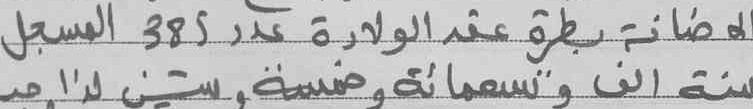 الاضافة بطرة عقد الولادة عدد 385 المسجل
سنة الف وتسعمائة وخمسة وستين لذا وجد